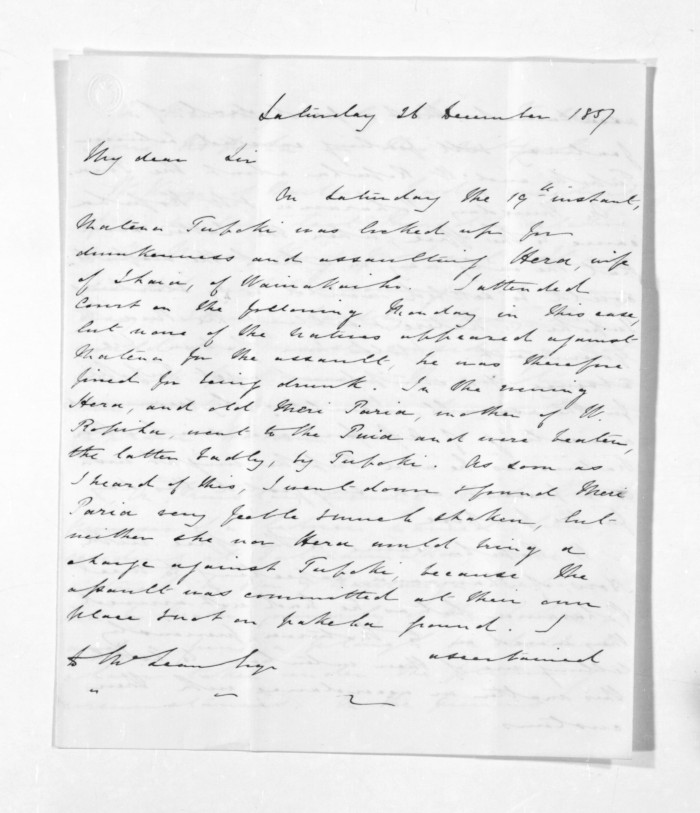 Saturday 26 December 1857
My dear Sir
On Saturday the 19th instant,
Matena Tupoki was locked up for
drunkenness and assaulting Hera, wife
of Ihaia, of I attended
Court on the following Monday in this case,
but none of the natives appeared against
Matena for the assault, he was therefore
fined for being drunk. In the evening
Hera, and old Meri Paria, mother of W.
Ropiha, went to the and were beaten,
the latter badly, by Tupoki. As soon as
I heard of this, I went down & found Meri
Paria very feeble & much shaken, but
neither she nor Hera would bring a
charge against Tupoki, because the
assault was committed at their own
place & not on pakeha ground. I
ascertained
McLean Esqr